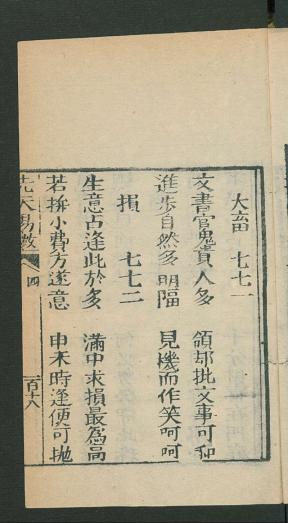 大畜 七七一
文書官鬼貴人多 領却批文事可和
進步自然多明隔 見機而作笑呵呵
損 七七二
生意占逢此於多 滿中求損最為高
若拚小費方遂意 申未時逢便可拋
先天易數 四 一百十八